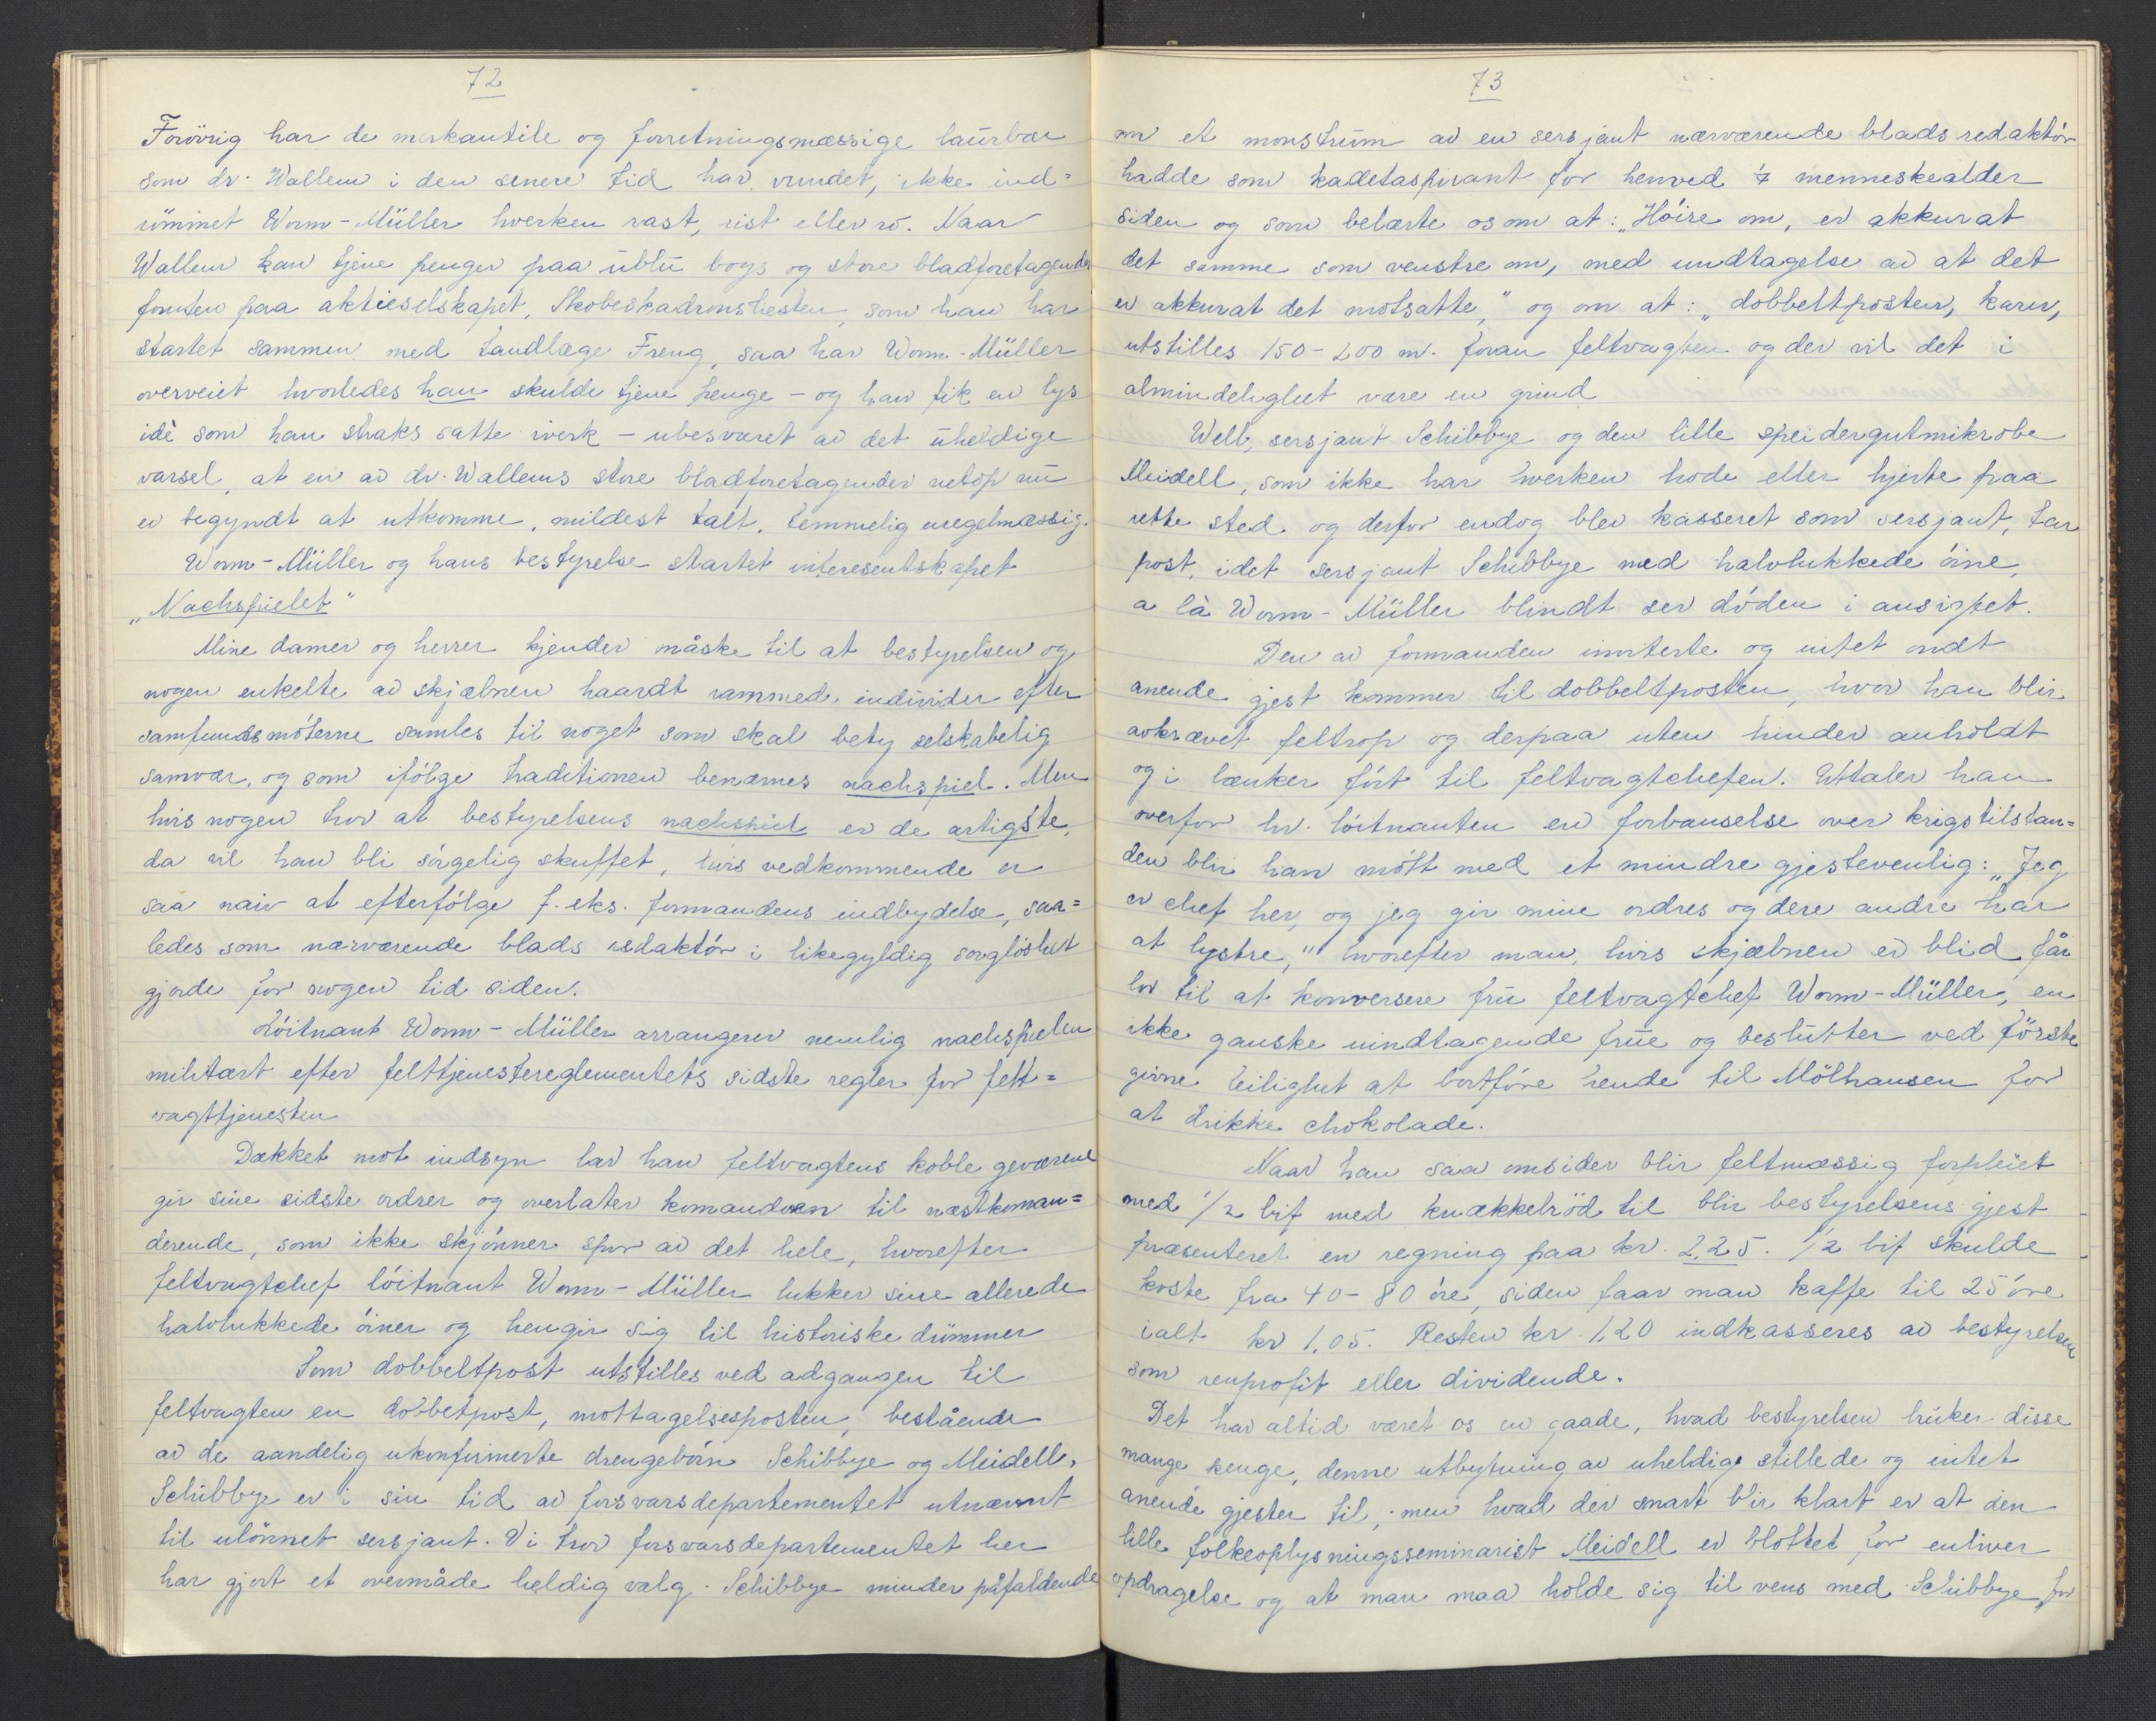 72
Forövrig har de merkantile og forretningsmæssige laurbær
som dr. Wallem i den senere tid har vundet, ikke ind=
römmet Worm-Müller hverken rast, rist eller ro. Naar
Wallem kan tjene penger paa ublu boys og store bladforetagender
foruten paa aktieselskapet, Skobeskadronshesten, som han har
startet sammen med tandlæge Freng, saa har Worm-Müller
overveiet hvorledes han skulde tjene penge – og han fik en lys
idè som han straks satte iverk – ubesværet av det uheldige
varsel, at en av dr. Wallems store bladforetagender netop nu
er begyndt at utkomme, mildest talt, temmelig uregelmæssig.
Worm-Müller og hans bestyrelse startet interesentskapet
„Nachspielet"
Mine damer og herrer kjender måske til at bestyrelsen og
nogen enkelte av skjæbnen haardt rammede individer efter
samfundsmöterne samles til noget som skal bety selskabelig
samvær, og som ifölge traditionen benævnes nachspiel. Men
hvis nogen tror at bestyrelsens nachspiel er de artigste,
da vil han bli sörgelig skuffet, hvis vedkommende er
saa naiv at efterfölge f. eks. formandens indbydelse, saa=
ledes som nærværende blads redaktör i likegyldig sorglöshet
gjorde for nogen tid siden.
Löitnant Worm-Müller arrangerer nemlig nachspielen
militært efter felttjenestereglementets sidste regler for felt=
vagttjenesten
Dækket mot indsyn lar han feltvagtens koble geværene
gir sine sidste ordrer og overlater komandoen til næstkoman=
derende, som ikke skjönner spor av det hele, hvorefter
feltvagtchef löitnant Worm-Müller lukker sine allerede
halvlukkede öiner og hengir sig til historiske dummer
Som dobbeltpost utstilles ved adgangen til
feltvagten en dobbetpost, mottagelsesposten, bestående
av de aandelig ukonfirmerte drengebörn Schibbye og Meidell.
Schibbye er i sin tid av forsvarsdepartementet utnævnt
til ulönnet sersjant. Vi tror forsvarsdepartementet her
har gjort et overmåde heldig valg. Schibbye minder påfaldende
73
om et monstrum av en sersjant nærværende blads redaktör
hadde som kadetaspirant for henved 7 menneskealder
siden og som belærte os om at: „Höire om, er akkurat
det samme som venstre om, med undtagelse av at det
er akkurat det motsatte," og om at: „dobbeltposten, karer,
utstilles 150-200 m. foran feltvagten og der vil det i
almindelighet være en grind
Well, sersjant Schibbye og den lille speidergutmikrobe
Meidell, som ikke har hverken hode eller hjerte paa
rette sted og derfor endog blev kasseret som sersjant, tar
post, idet sersjant Schibbye med halvlukkede öine,
a là Worm-Müller blindt ser döden i ansigtet.
Den av formanden inviterte og intet ondt
anende gjest kommer til dobbeltposten, hvor han blir
avkrævet feltrop og derpaa uten hinder anholdt
og i lænker fört til feltvagtchefen. Uttaler han
overfor hr. löitnanten en forbauselse over krigstilstan=
den blir han mött med et mindre gjestevenlig: „Jeg
er chef her, og jeg gir mine ordres og dere andre har
at lystre," hvorefter man, hvis skjæbnen er blid får
lov til at konversere fru feltvagtchef Worm-Müller, en
ikke ganske uindtagende frue og beslutter ved förste
givne leilighet at bortföre hende til Mölhausen for
at drikke chokolade.
Naar han saa omsider blir feltmæssig forpleiet
med 1/2 bif med knækkebröd til blir bestyrelsens gjest
præsenteret en regning paa kr. 2,25. 1/2 bif skulde
koste fra 40-80 öre, siden faar man kaffe til 25 öre
ialt kr 1.05. Resten kr 1,20 indkasseres av bestyrelsen
som renprofit eller dividende.
Det har altid været os en gaade, hvad bestyrelsen bruker disse
mange penge, denne utbytning av uheldige stillede og intet
anende gjester til, men hvad der snart blir klart er at den
lille folkeoplysningsseminarist Meidell er blottet for enhver
opdragelse og at man maa holde sig til vens med Schibbye for